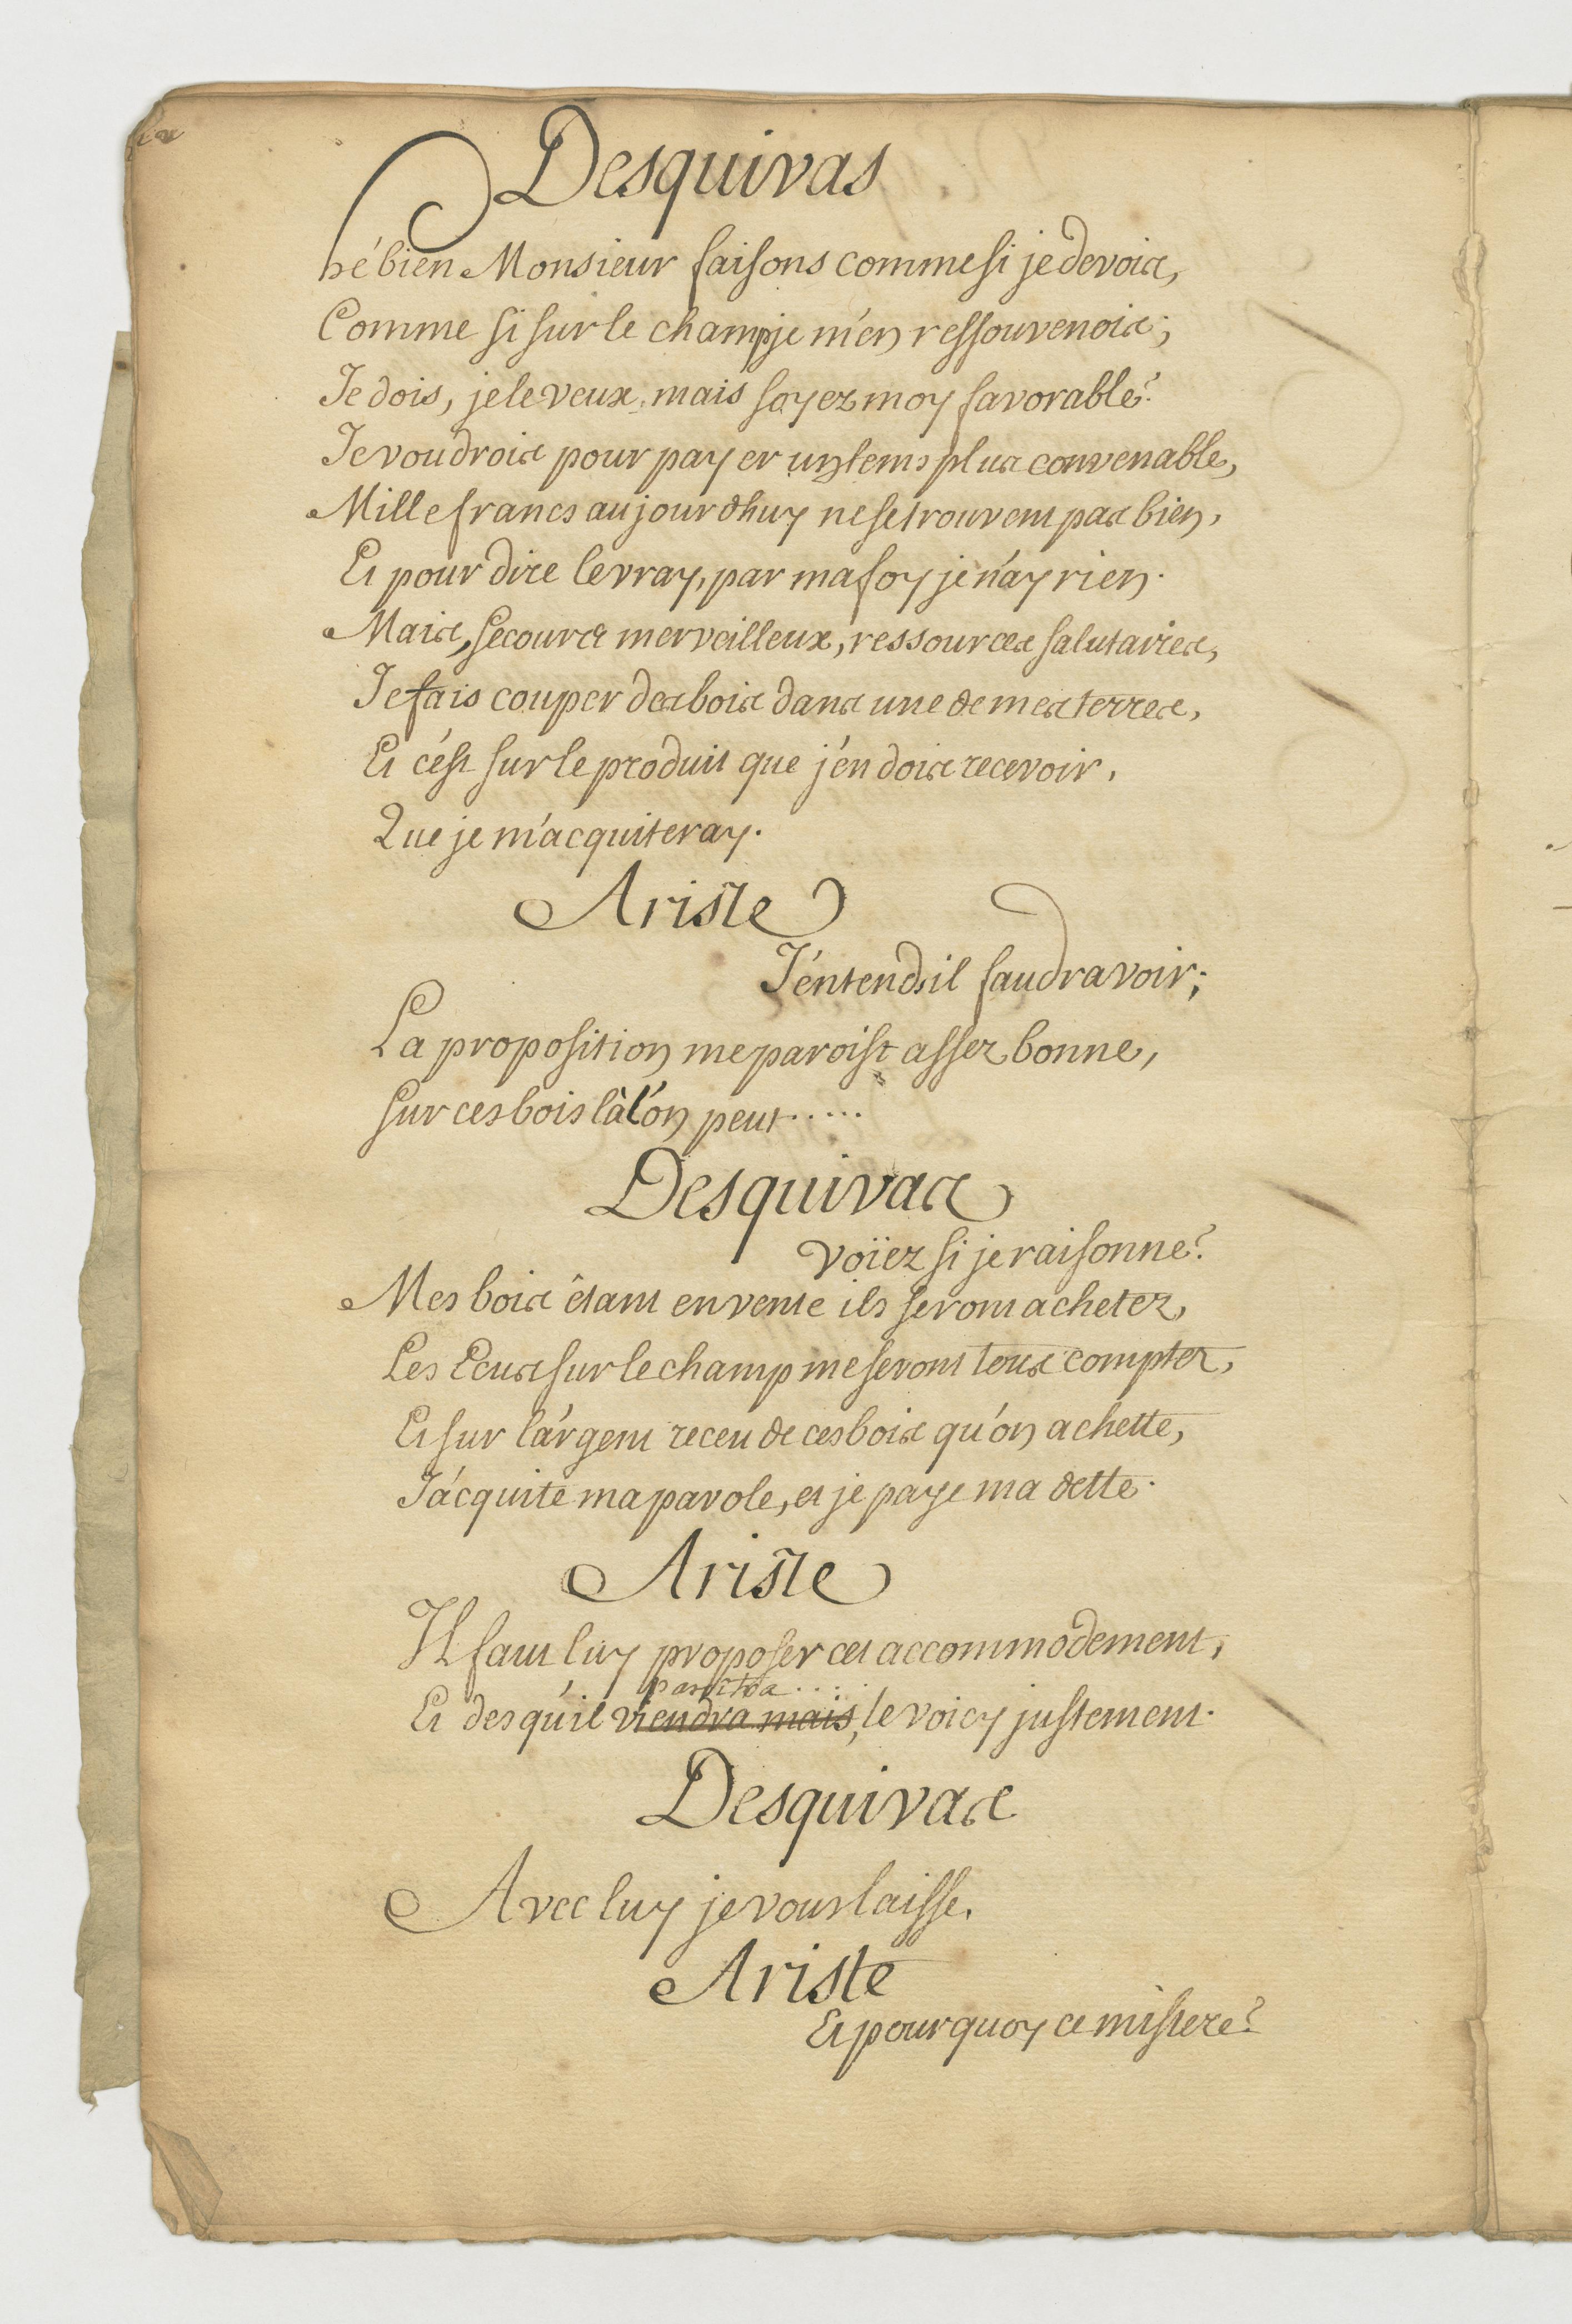 Desquivas
hé bien Monsieur faisons comme si je devois,
Comme si sur le champ je m'en ressouvenois;
Je dois, je le veux, mais soyez moy favorable?
Je voudrois pour payer un tems plus convenable,
Mille francs aujourdhuy ne se trouvent pas bien,
Et pour dire le vray, par ma foy je n'ay rien.
Mais, secours merveilleux, ressources salutaires,
Je fais couper des bois dans une de mes terres,
Et c'est sur le produit que j'en dois recevoir,
Que je m'acquiteray.
Ariste
J'entends il faudra voir;
La proposition me paroist assez bonne,
Sur ces bois là l'on peut.....
Desquivas
Voïez si je raisonne?
Mes bois êtant en vente ils seront achetez,
Les Ecus sur le champ me seront tous comptez,
Et sur l'argent receu de ces bois qu'on achette,
J'acquite ma parole, et je paye ma dette.
Ariste
Il faut luy proposer cet accommodement,
paroîtra....
Et des qu'il viendra mais, le voicy justement.
Desquivas
Avec luy je vous laisse.
Ariste
Et pourquoy ce mistere?